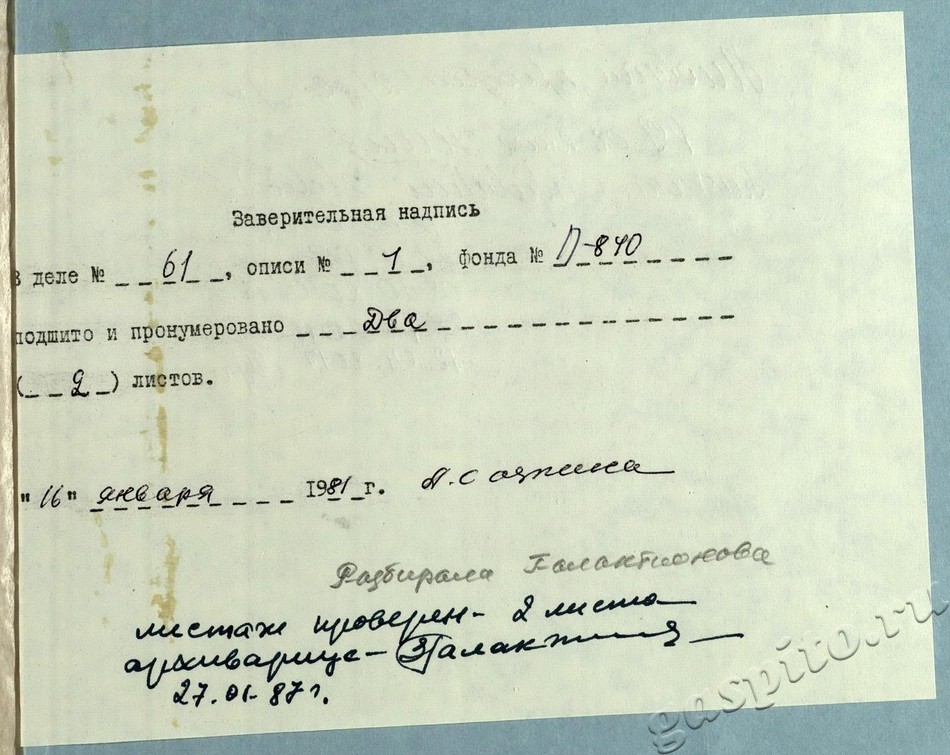 Заверительная надпись
В деле № 61, описи № 1, фонда № П-840
подшито и пронумеровано Два
(2) листов.
"16" января 1981 г.
Разбирала Галактионова
листаж проверен - 2 листа
архивариус -
27.01.87 г.
gaspito.ru